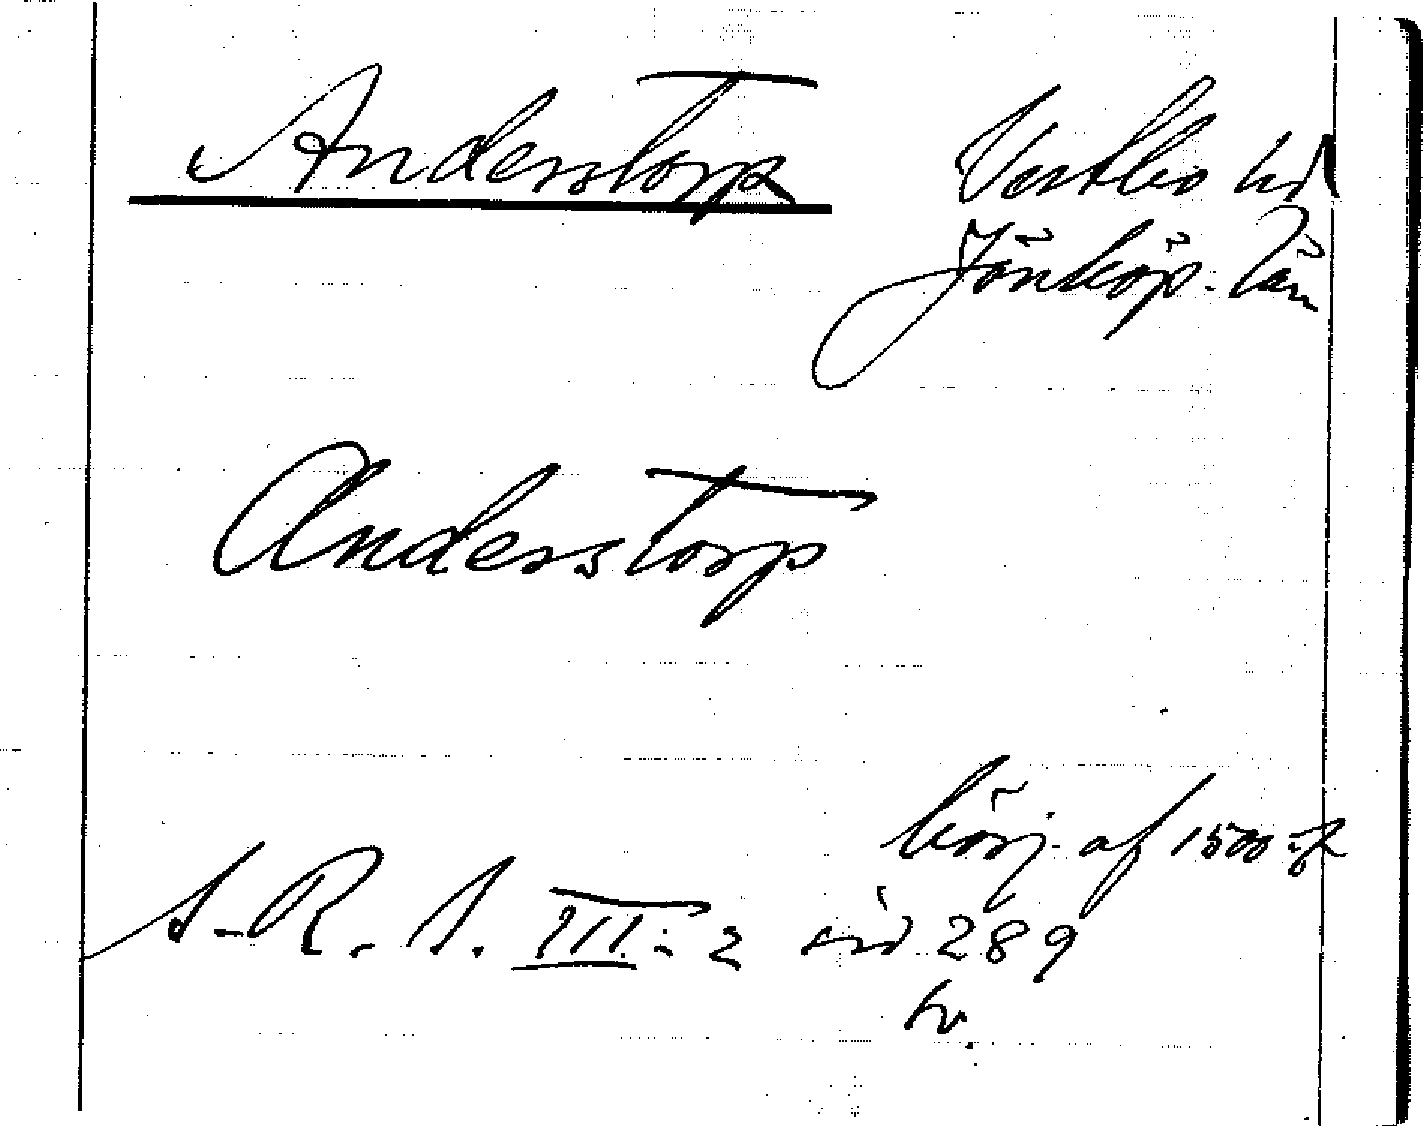 Anderstorp Vestbo hd
Jönköp. län
Anderstorp
börj. af 1500-t
S.R.A. III:2 sid 289
hv.